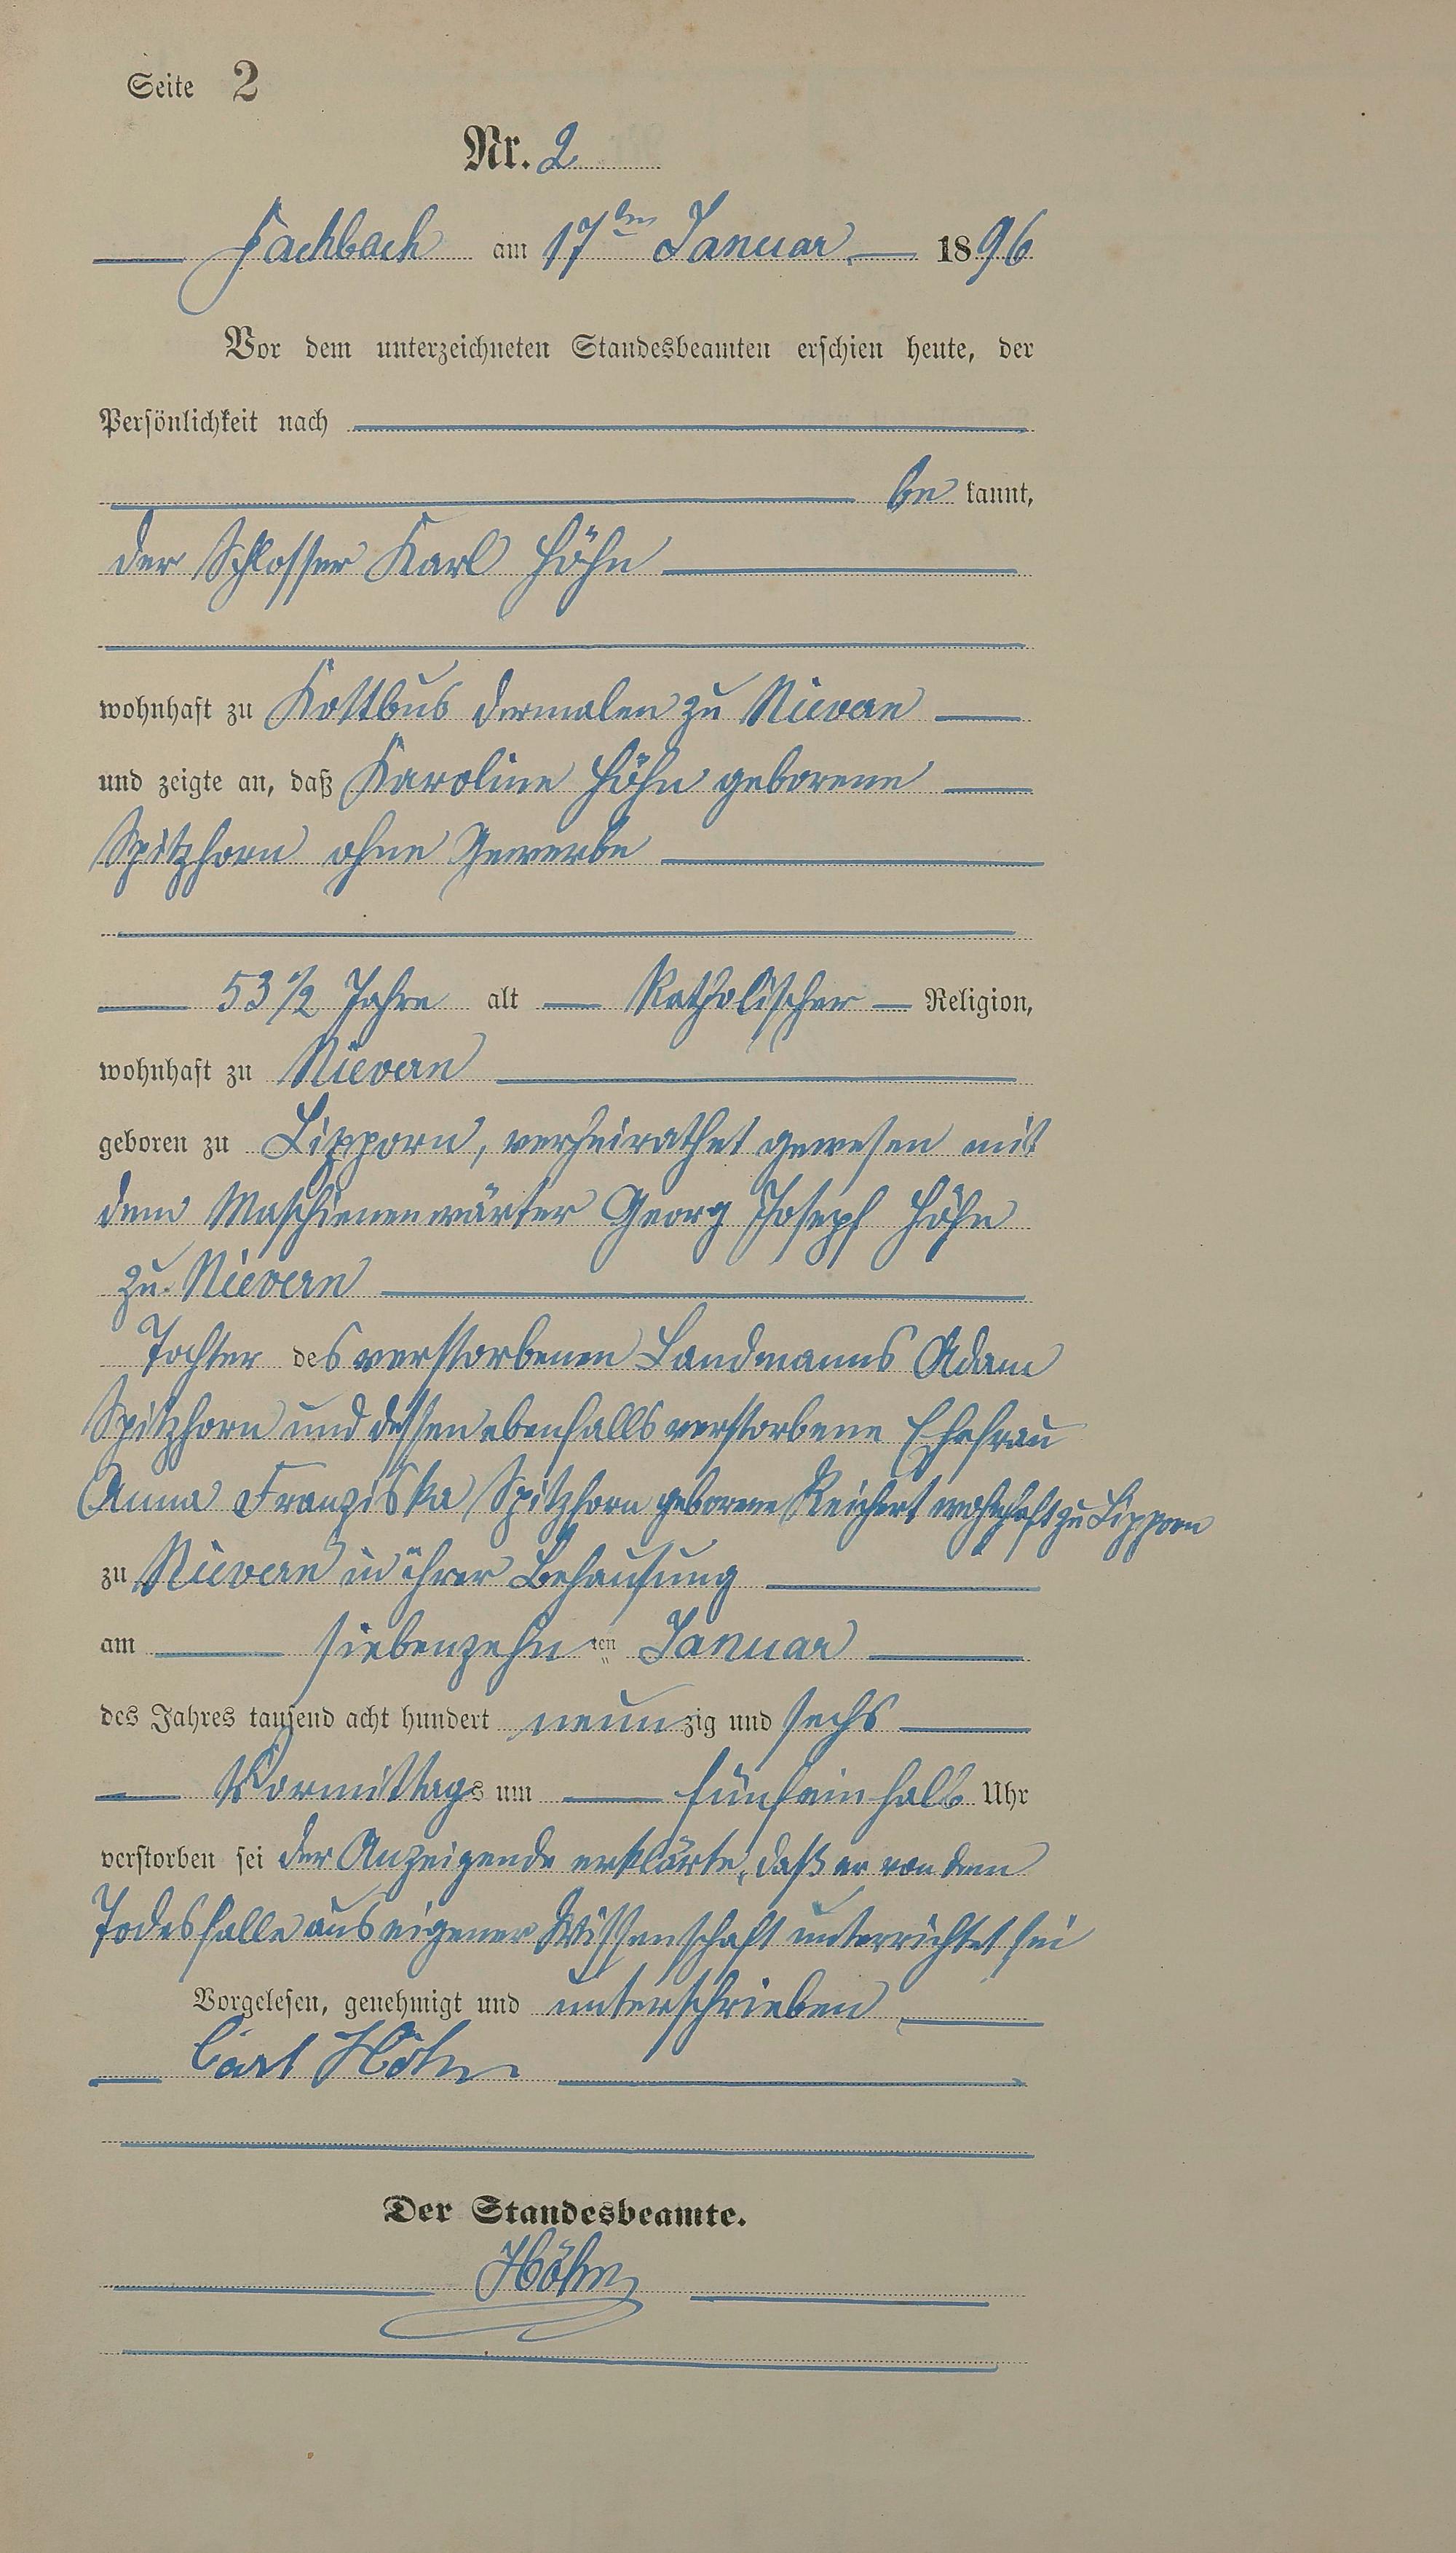 Seite 2
Nr. 2
Fachbach am 17ten Januar 1896
Vor dem unterzeichneten Standesbeamten erschien heute, der
Persönlichkeit nach
be kannt,
der Schlosser Karl Höhn
wohnhaft zu Kottbus dermalen zu Nievern
und zeigte an, daß Karoline Höhn geborene
Spitzhorn ohne Gewerbe
53 1/2 Jahre alt katholischer Religion,
wohnhaft zu Nievern
geboren zu Lipporn, verheirathet gewesen mit
dem Maschienenwärter Georg Joseph Höhn
zu Nievern
Tochter des verstorbenen Landmanns Adam
Spitzhorn und dessen ebenfalls verstorbene Ehefrau
Anna Franziska Spitzhorn geborene Reichert wohnhaft zu Lipporn
zu Nievern in ihrer Behausung
am siebenzehn ten Januar
des Jahres tausend acht hundert neun zig und sechs
Vormittags um fünfeinhalb Uhr
verstorben sei der Anzeigende erklärte, daß er von dem
Todesfalle aus eigener Wissenschaft unterrichtet sei
Vorgelesen, genehmigt und unterschrieben
Carl Höhn
Der Standesbeamte.
Höhn